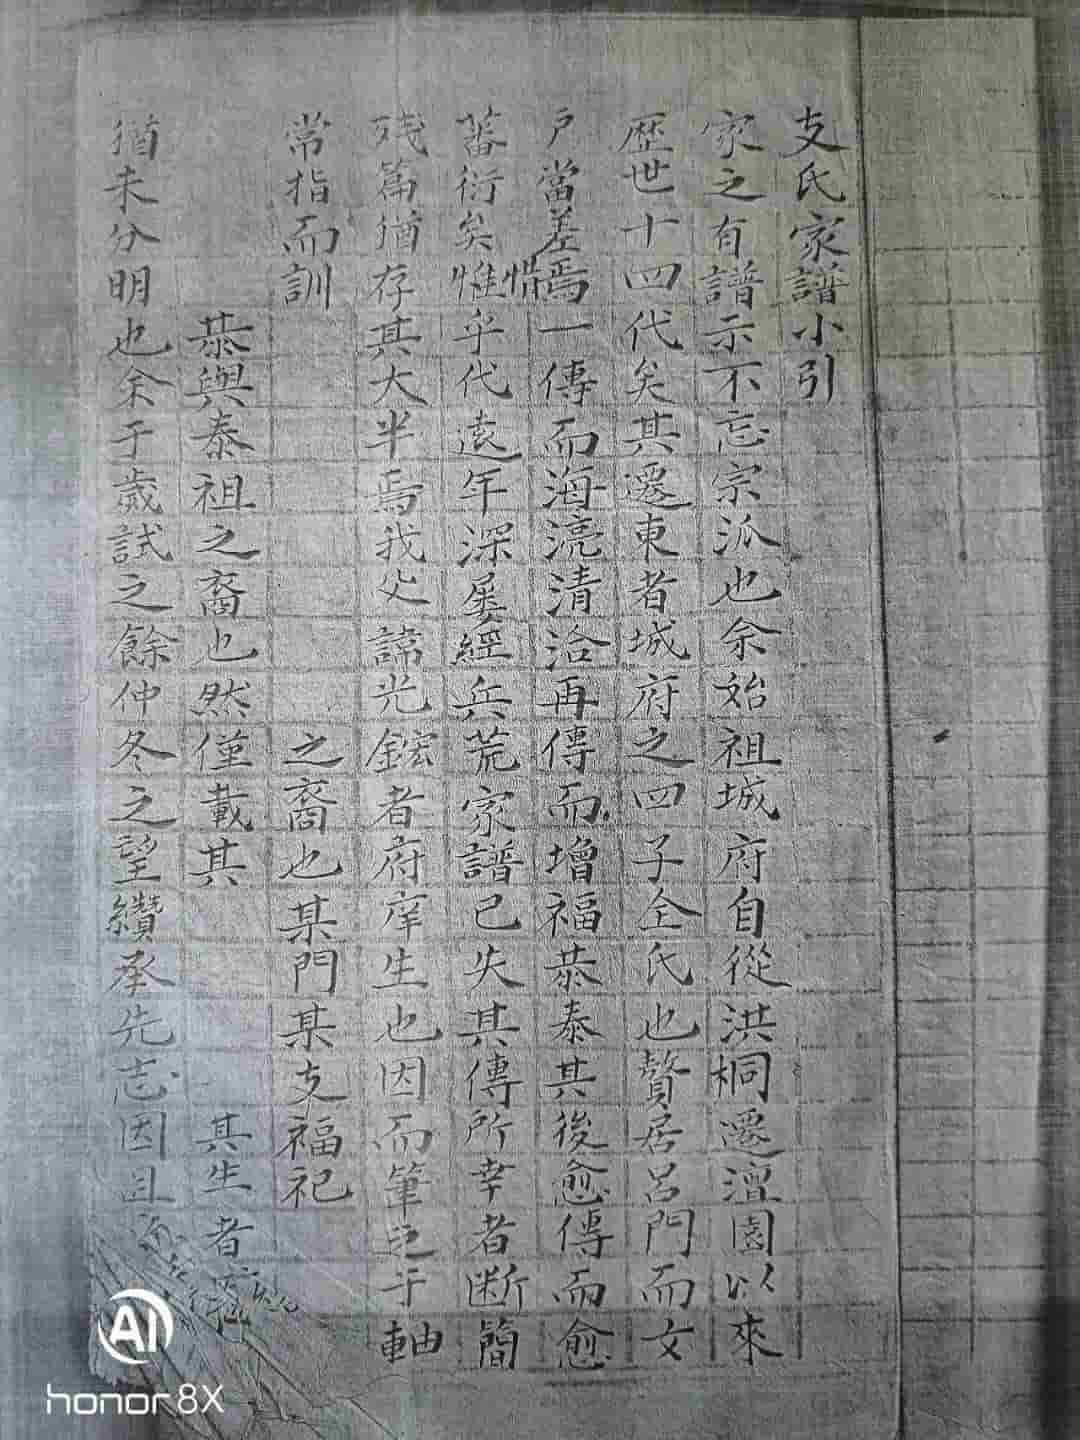 支氏家譜小引
家之有譜示不忘宗派也余始祖城府自從洪桐遷澶園以來
歷世十四代矣其遷東者城府之四子仝氏也贅居呂門而文
戶當差焉一傳而海濸清洽再傳而增福恭泰其後愈傳而愈
蕃衍矣惟惜乎代遠年深屢經兵荒家譜已失其傳所幸者断簡
残篇猶存其大半焉我父諱光鋐者府庠生也因而筆之于軸
常指而訓 之裔也某門某支福祀
恭與泰祖之裔也然僅載其 其生者
猶未分明也余于歲試之餘仲冬之望纘承先志因且
AI
honor 8X